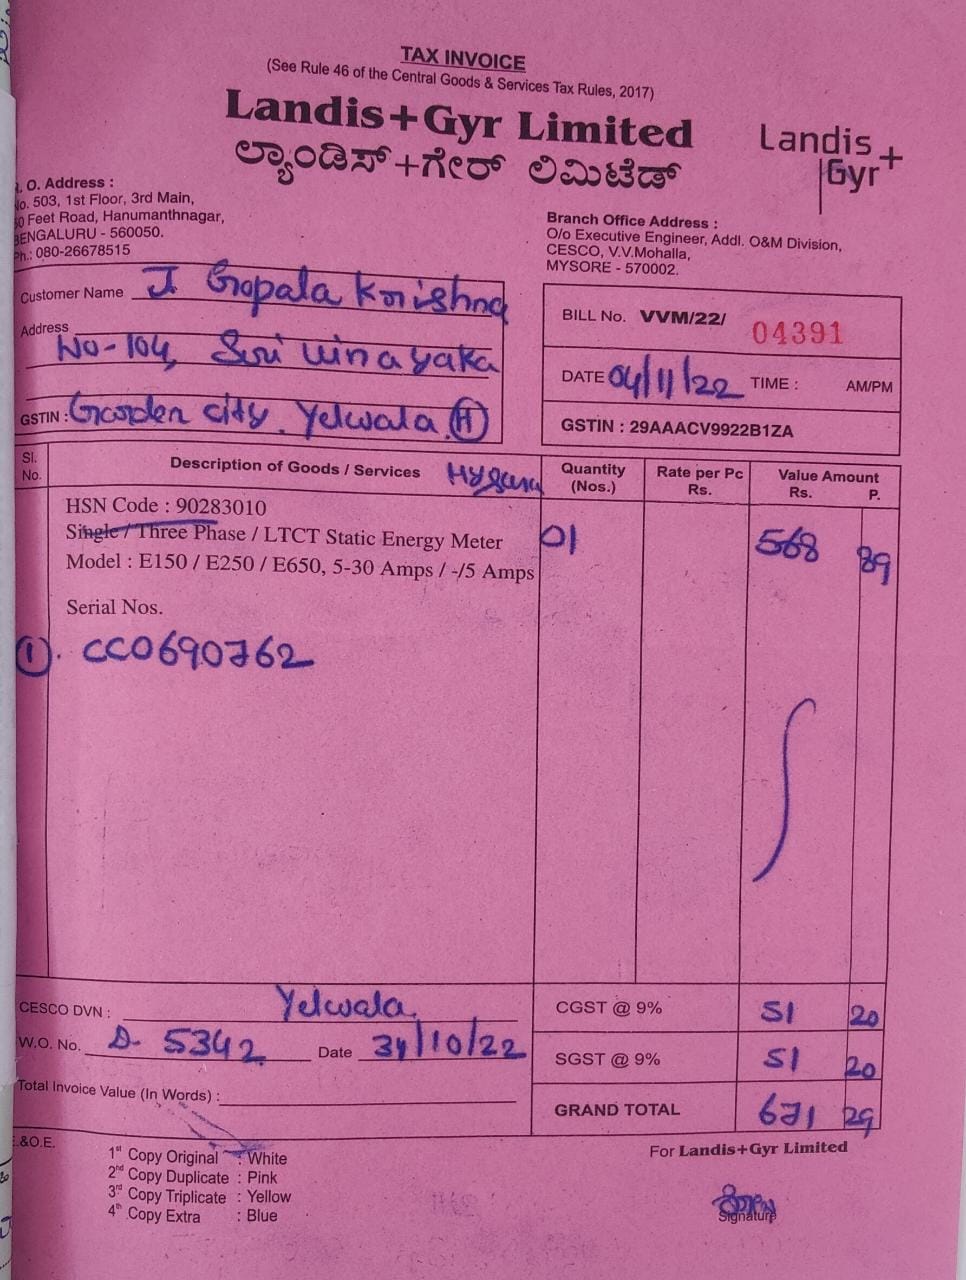 TAX INVOICE
(See Rule 46 of the Central Goods & Services Tax Rules, 2017)
Landis+Gyr Limited
ಲ್ಯಾಂಡಿಸ್+ಗೇರ್ ಲಿಮಿಟೆಡ್
Landis+
Gyr
. O. Address :
No. 503, 1st Floor, 3rd Main,
0 Feet Road, Hanumanthnagar,
BENGALURU - 560050.
Ph.: 080-26678515
Branch Office Address :
O/o Executive Engineer, Addl. O&M Division,
CESCO, V.V.Mohalla,
MYSORE - 570002.
Customer Name J. Gopala Krrishna
Address
No-104, Siri vinayaka
GSTIN : Garden city. Yelwala (H)
BILL No. VVM/22/ 04391
DATE 04/11/22 TIME : AM/PM
GSTIN : 29AAACV9922B1ZA
Sl. No. Description of Goods / Services Quantity (Nos.) Rate per Pc Rs. Value Amount Rs. P.
HSN Code : 90283010
Single / Three Phase / LTCT Static Energy Meter 01 568 89
Model : E150 / E250 / E650, 5-30 Amps / -/5 Amps
Serial Nos.
1. CC0690762
CESCO DVN : Yelwala
CGST @ 9% 51 20
W.O. No. D. 5342 Date 31/10/22
SGST @ 9% 51 20
Total Invoice Value (In Words) :
GRAND TOTAL 671 29
.&O.E.
1st Copy Original : White
2nd Copy Duplicate : Pink
3rd Copy Triplicate : Yellow
4th Copy Extra : Blue
For Landis+Gyr Limited
Signature